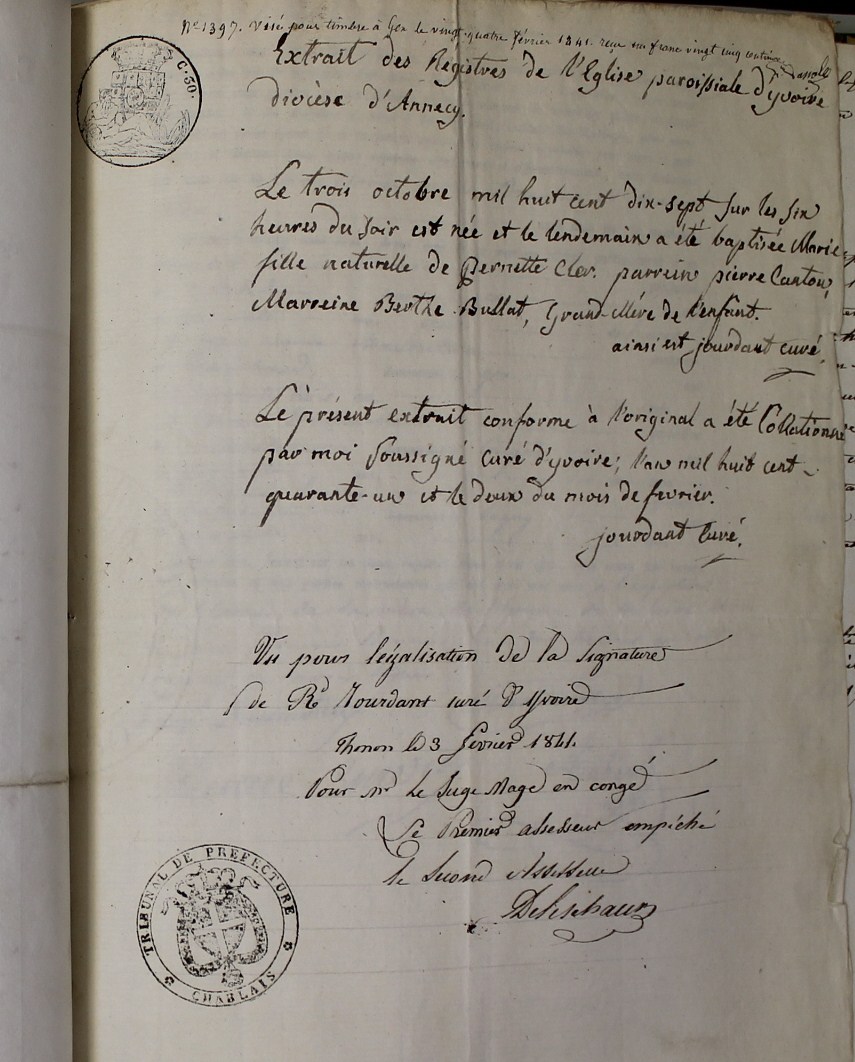 N° 1397. Visé pour timbre à Gex le vingt-quatre février 1841. reçu un franc vingt cinq centimes
C. 30.
Extrait des Registres de l'Eglise paroissiale d'yvoire
diocèse d'Annecy.
Le trois octobre mil huit cent dix-sept sur les six
heures du soir est née et le lendemain a été baptisée Marie
fille naturelle de Pernette Cler. parrein pierre Cantou,
Marreine Berthe Bullat, Grand-Mére de l'enfânt.
ainsi est jourdant curé.
Le présent extrait conforme à l'original a été Collationné
par moi soussigné curé d'yvoire; l'an mil huit cent
quarante-un et le deux du mois de fevrier.
jourdant Curé.
Vu pour légalisation de la signature
de Rd Jourdant curé d'Yvoire
Thonon le 3 fevrier 1841.
Pour Mr le Juge Mage en congé
Le Premier assesseur empêché
le second Assesseur
TRIBUNAL DE PREFECTURE
CHABLAIS